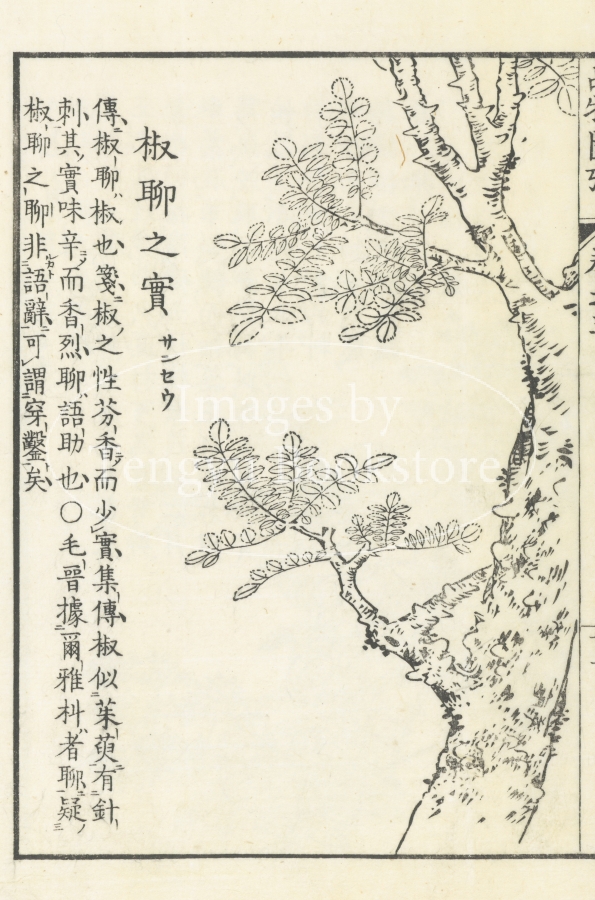 椒聊之實 サンセウ
傳椒聊椒也箋椒之性芬香而少實集傳椒似茱萸有針
刺其實味辛而香烈聊語助也○毛晉據爾雅朻者聊疑
椒聊之聊非語辭可謂穿鑿矣
Images by
Tengyu Bookstore